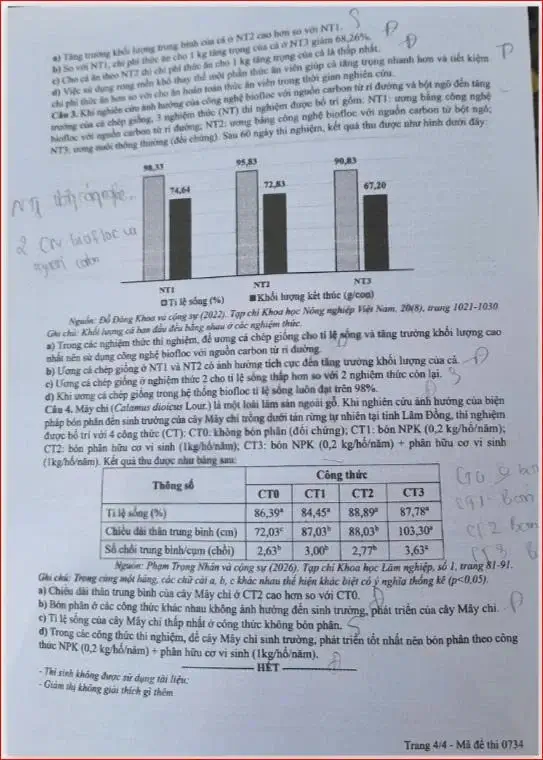 a) Tăng trưởng khối lượng trung bình của cá ở NT2 cao hơn so với NT1. S
b) So với NT1, chi phí thức ăn cho 1 kg tăng trọng của cá ở NT3 giảm 68,26%. Đ
c) Cho cá ăn theo NT2 thì chi phí thức ăn cho 1 kg tăng trọng của cá là thấp nhất. Đ
d) Việc sử dụng rong mền khô thay thế một phần thức ăn viên giúp cá tăng trọng nhanh hơn và tiết kiệm
chi phí thức ăn hơn so với cho ăn hoàn toàn thức ăn viên trong thời gian nghiên cứu. Đ
Câu 3. Khi nghiên cứu ảnh hưởng của công nghệ biofloc với nguồn carbon từ rỉ đường và bột ngô đến tăng
trưởng của cá chép giống, 3 nghiệm thức (NT) thí nghiệm được bố trí gồm. NT1: ương bằng công nghệ
biofloc với nguồn carbon từ rỉ đường; NT2: ương bằng công nghệ biofloc với nguồn carbon từ bột ngô;
NT3: ương nuôi thông thường (đối chứng). Sau 60 ngày thí nghiệm, kết quả thu được như hình dưới đây:
98,33 95,83 90,83
74,64 72,83 67,20
2 CN biofloc
NT1 NT2 NT3
Tỉ lệ sống (%) Khối lượng kết thúc (g/con)
Nguồn: Đỗ Đăng Khoa và cộng sự (2022). Tạp chí Khoa học Nông nghiệp Việt Nam, 20(8), trang 1021-1030
Ghi chú: Khối lượng cá ban đầu đều bằng nhau ở các nghiệm thức.
a) Trong các nghiệm thức thí nghiệm, để ương cá chép giống cho tỉ lệ sống và tăng trưởng khối lượng cao
nhất nên sử dụng công nghệ biofloc với nguồn carbon từ rỉ đường.
b) Ương cá chép giống ở NT1 và NT2 có ảnh hưởng tích cực đến tăng trưởng khối lượng của cá. Đ
c) Ương cá chép giống ở nghiệm thức 2 cho tỉ lệ sống thấp hơn so với 2 nghiệm thức còn lại. S
d) Khi ương cá chép giống trong hệ thống biofloc tỉ lệ sống luôn đạt trên 98%.
Câu 4. Mây chỉ (Calamus dioicus Lour.) là một loài lâm sản ngoài gỗ. Khi nghiên cứu ảnh hưởng của biện
pháp bón phân đến sinh trưởng của cây Mây chỉ trồng dưới tán rừng tự nhiên tại tỉnh Lâm Đồng, thí nghiệm
được bố trí với 4 công thức (CT): CT0: không bón phân (đối chứng); CT1: bón NPK (0,2 kg/hố/năm);
CT2: bón phân hữu cơ vi sinh (1kg/hố/năm); CT3: bón NPK (0,2 kg/hố/năm) + phân hữu cơ vi sinh
(1kg/hố/năm). Kết quả thu được như bảng sau:
Thông số Công thức
CT0 CT1 CT2 CT3
Tỉ lệ sống (%) 86,39ᵃ 84,45ᵃ 88,89ᵃ 87,78ᵃ
Chiều dài thân trung bình (cm) 72,03ᶜ 87,03ᵇ 88,03ᵇ 103,30ᵃ
Số chồi trung bình/cụm (chồi) 2,63ᵇ 3,00ᵇ 2,77ᵇ 3,63ᵃ
Nguồn: Phạm Trọng Nhân và cộng sự (2026). Tạp chí Khoa học Lâm nghiệp, số 1, trang 81-91.
Ghi chú: Trong cùng một hàng, các chữ cái a, b, c khác nhau thể hiện khác biệt có ý nghĩa thống kê (p<0,05).
a) Chiều dài thân trung bình của cây Mây chỉ ở CT2 cao hơn so với CT0.
b) Bón phân ở các công thức khác nhau không ảnh hưởng đến sinh trưởng, phát triển của cây Mây chỉ. Đ
c) Tỉ lệ sống của cây Mây chỉ thấp nhất ở công thức không bón phân. S
d) Trong các công thức thí nghiệm, để cây Mây chỉ sinh trưởng, phát triển tốt nhất nên bón phân theo công
thức NPK (0,2 kg/hố/năm) + phân hữu cơ vi sinh (1kg/hố/năm). Đ
HẾT
- Thí sinh không được sử dụng tài liệu;
- Giám thị không giải thích gì thêm
Trang 4/4 - Mã đề thi 0734